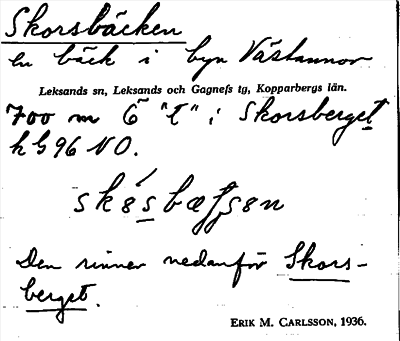 Skorsbäcken
en bäck i byn Västannor
Leksands sn, Leksands och Gagnefs tg, Kopparbergs län.
700 m Ö "t" i Skorsberget
k G 96 NO.
Den rinner nedanför Skors-
berget.
ERIK M. CARLSSON, 1936.